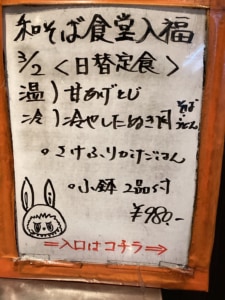 和そば食堂入福
3/2 <日替定食>
温)甘あげとじ
冷)冷やしたぬき肉 そば うどん
○さけふりかけごはん
○小鉢2品付
¥980.-
=入口はコチラ⇒